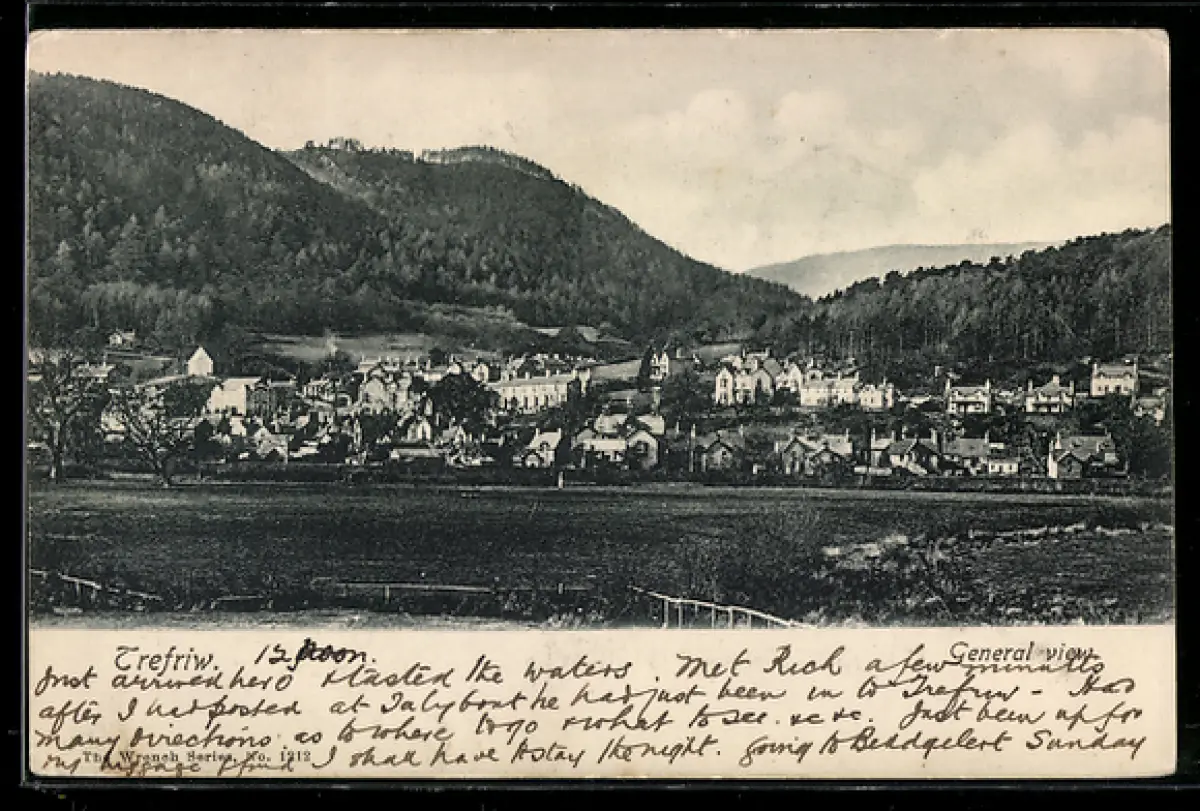 Trefriw. 12 Noon. General view
Just arrived here & tasted the waters. Met Rich a few minutes
after I had posted at Talybont he had just been in to Trefriw - Has
many directions as to where to go & what to see. &c &c. Just been up for
my luggage & find I shall have to stay the night. going to Beddgelert Sunday
The Wrench Series, No. 1212